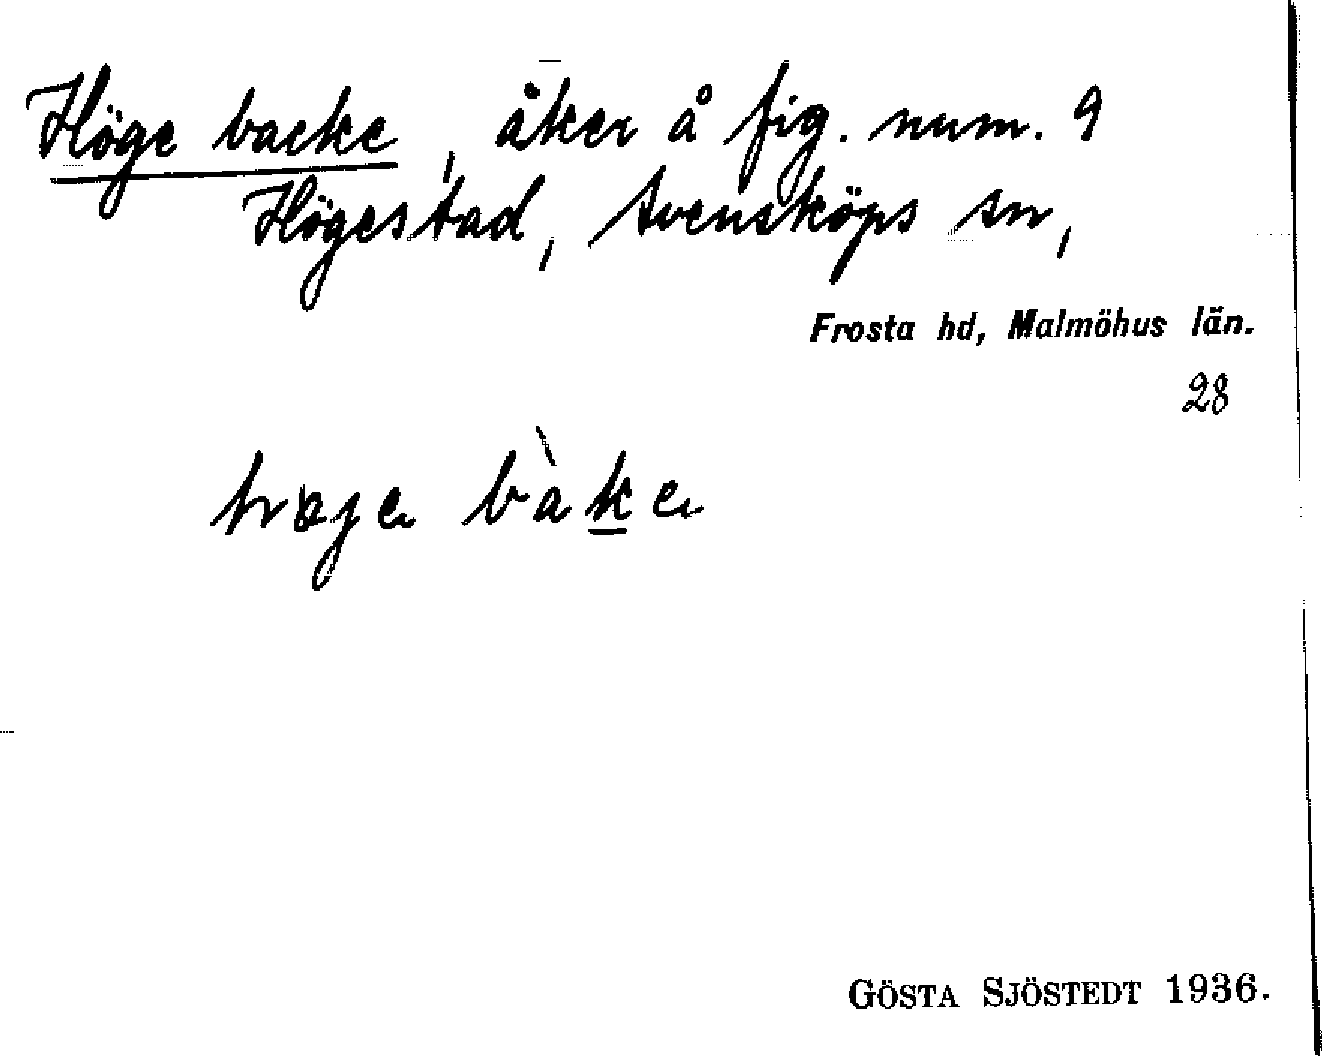 Höge backe, åker å fig. num. 9
Högestad, Svensköps sn,
Frosta hd, Malmöhus län.
28
bàke
GÖSTA SJÖSTEDT 1936.